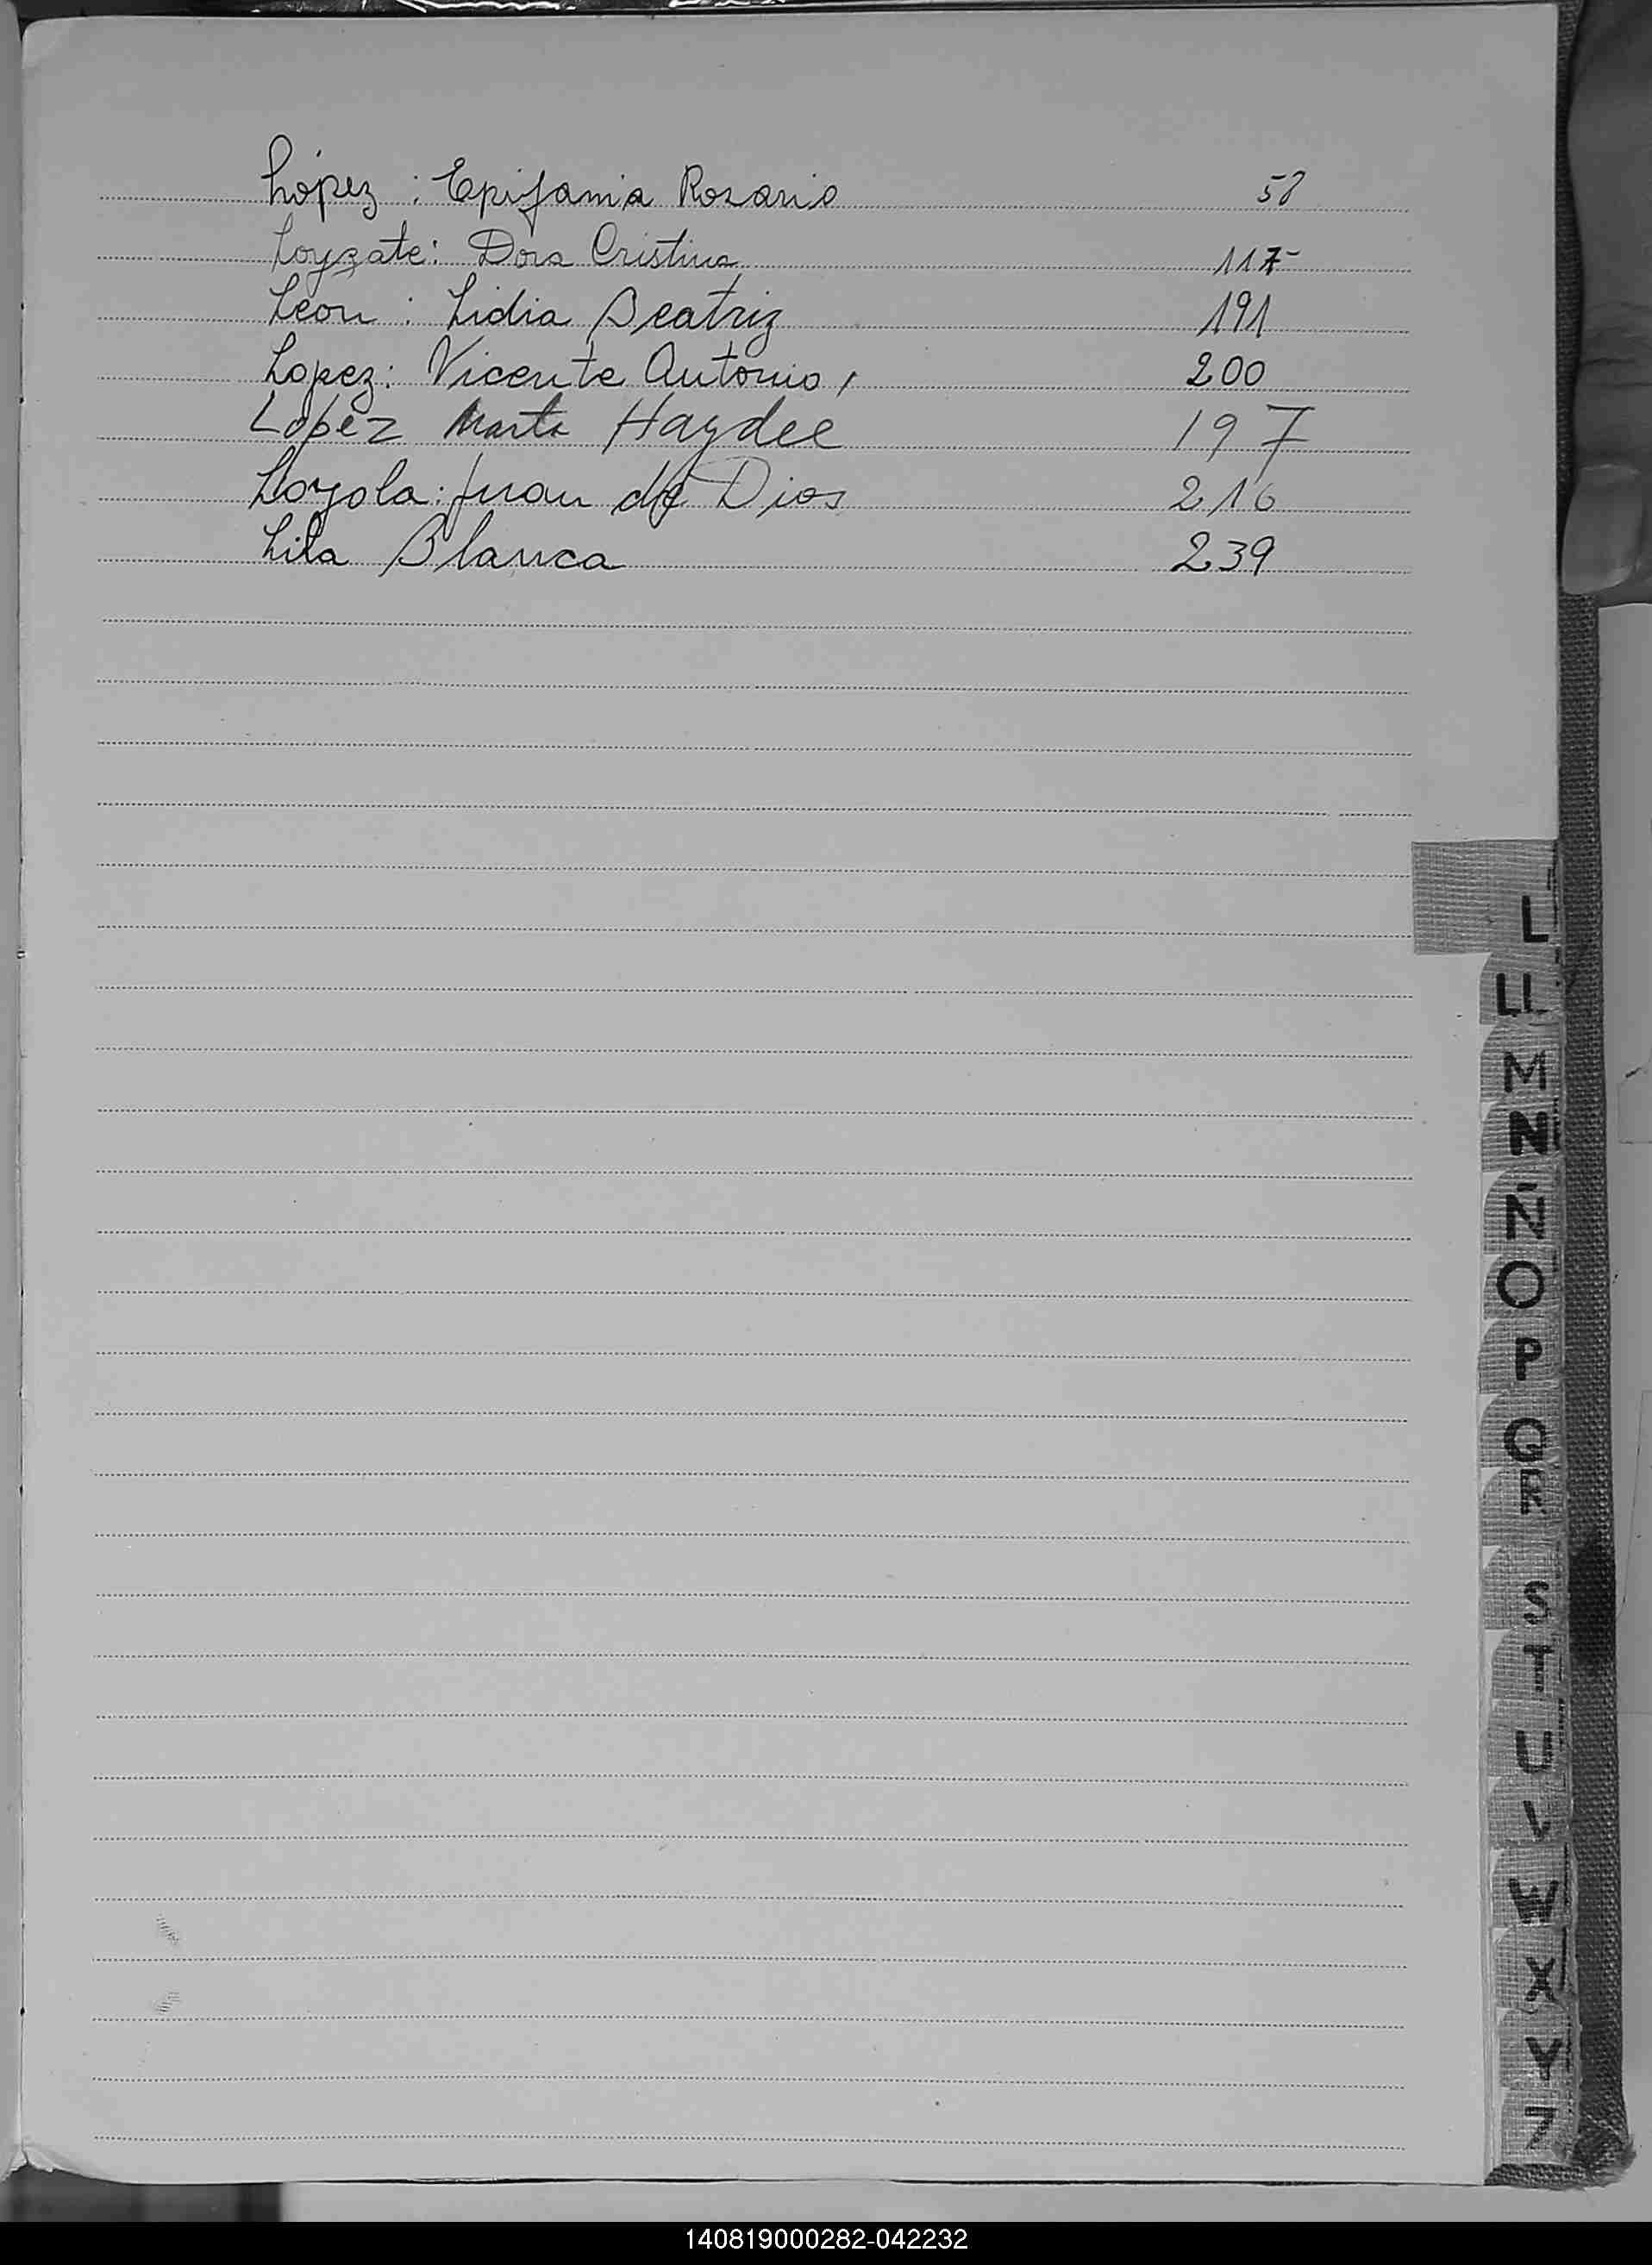 López : Epifania Rosario 58
Loyzate: Dora Cristina 117-
Leon : Lidia Beatriz 191
Lopez: Vicente Antonio, 200
López Marta Haydee 197
Loyola: Juan de Dios 216
Lila Blanca 239
L
LL
M
N
Ñ
O
P
Q
R
S
T
U
V
W
X
Y
Z
140819000282-042232